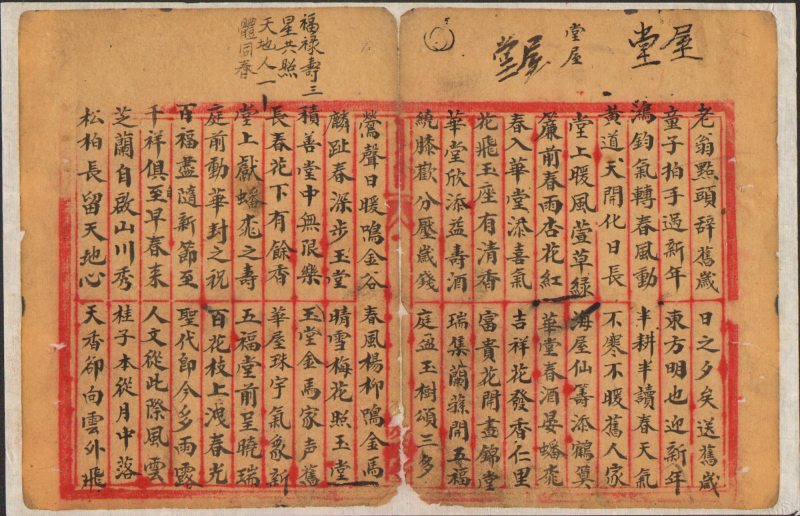 堂屋
堂屋
堂屋
老翁點頭辞舊歲 日之夕矣送舊歲
童子拍手過新年 東方明也迎新年
鴻鈞氣轉春風動 半耕半讀春天氣
黄道天開化日長 不寒不暖舊人家
堂上暖風萱草緑 海屋仙籌添鶴筭
簾前春雨杏花紅 華堂春酒晏蟠桃
春入華堂添喜氣 吉祥花發香仁里
花飛玉座有清香 富貴花開畫錦堂
華堂欣添益壽酒 瑞集蘭蓀開五福
繞膝歡分壓歲錢 庭盈玉樹頌三多
福禄壽三
星共照
天地人一
體同春
鶯聲日暖鳴金谷 春風楊柳鳴金馬
麟趾春深步玉堂 晴雪梅花照玉堂
積善堂中無限樂 玉堂金馬家声舊
長春花下有餘香 華屋珠宇氣象新
堂上獻蟠桃之壽 五福堂前呈曉瑞
庭前動華封之祝 百花枝上洩春光
百福盡隨新節至 聖代即今多雨露
千祥俱至早春来 人文從此際風雲
芝蘭自啟山川秀 桂子本從月中落
松柏長留天地心 天香卻向雲外飛